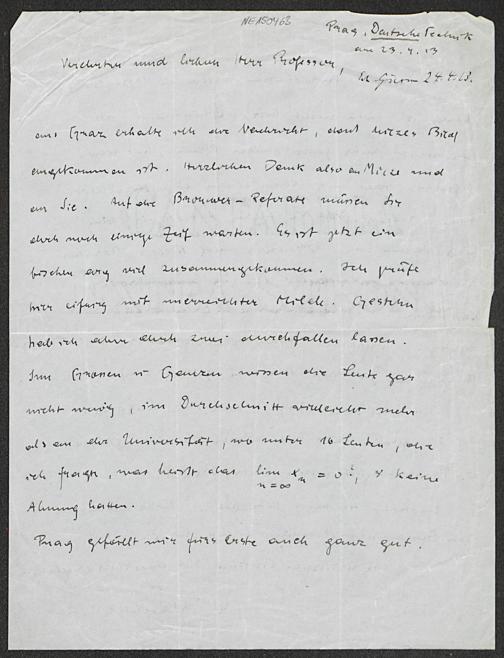 NE150463
Prag, Deutsche Technik
am 23. 4. 13
Verehrter und lieber Herr Professor!
24. 4. 13.
aus Graz erhalte ich die Nachricht, dass Bild
angekommen ist. Herzlichen Dank also an Mieze und
an Sie. Auf die Brouwer-Referate müssen Sie
doch noch einige Zeit warten. Es ist jetzt ein
bischen arg viel zusammengekommen. Ich prüfe
hier eifrig mit unerreichter Milde. Gestern
hab ich aber doch zwei durchfallen lassen.
Im Grossen u Ganzen wissen die Leute gar
nicht wenig, im Durchschnitt vielleicht mehr
als an der Universität, wo unter 16 Leuten, die
ich fragte, was heisst das lim xn = 0?, keine
n=∞
Ahnung hatten.
Prag gefällt mir fürs Erste auch ganz gut.